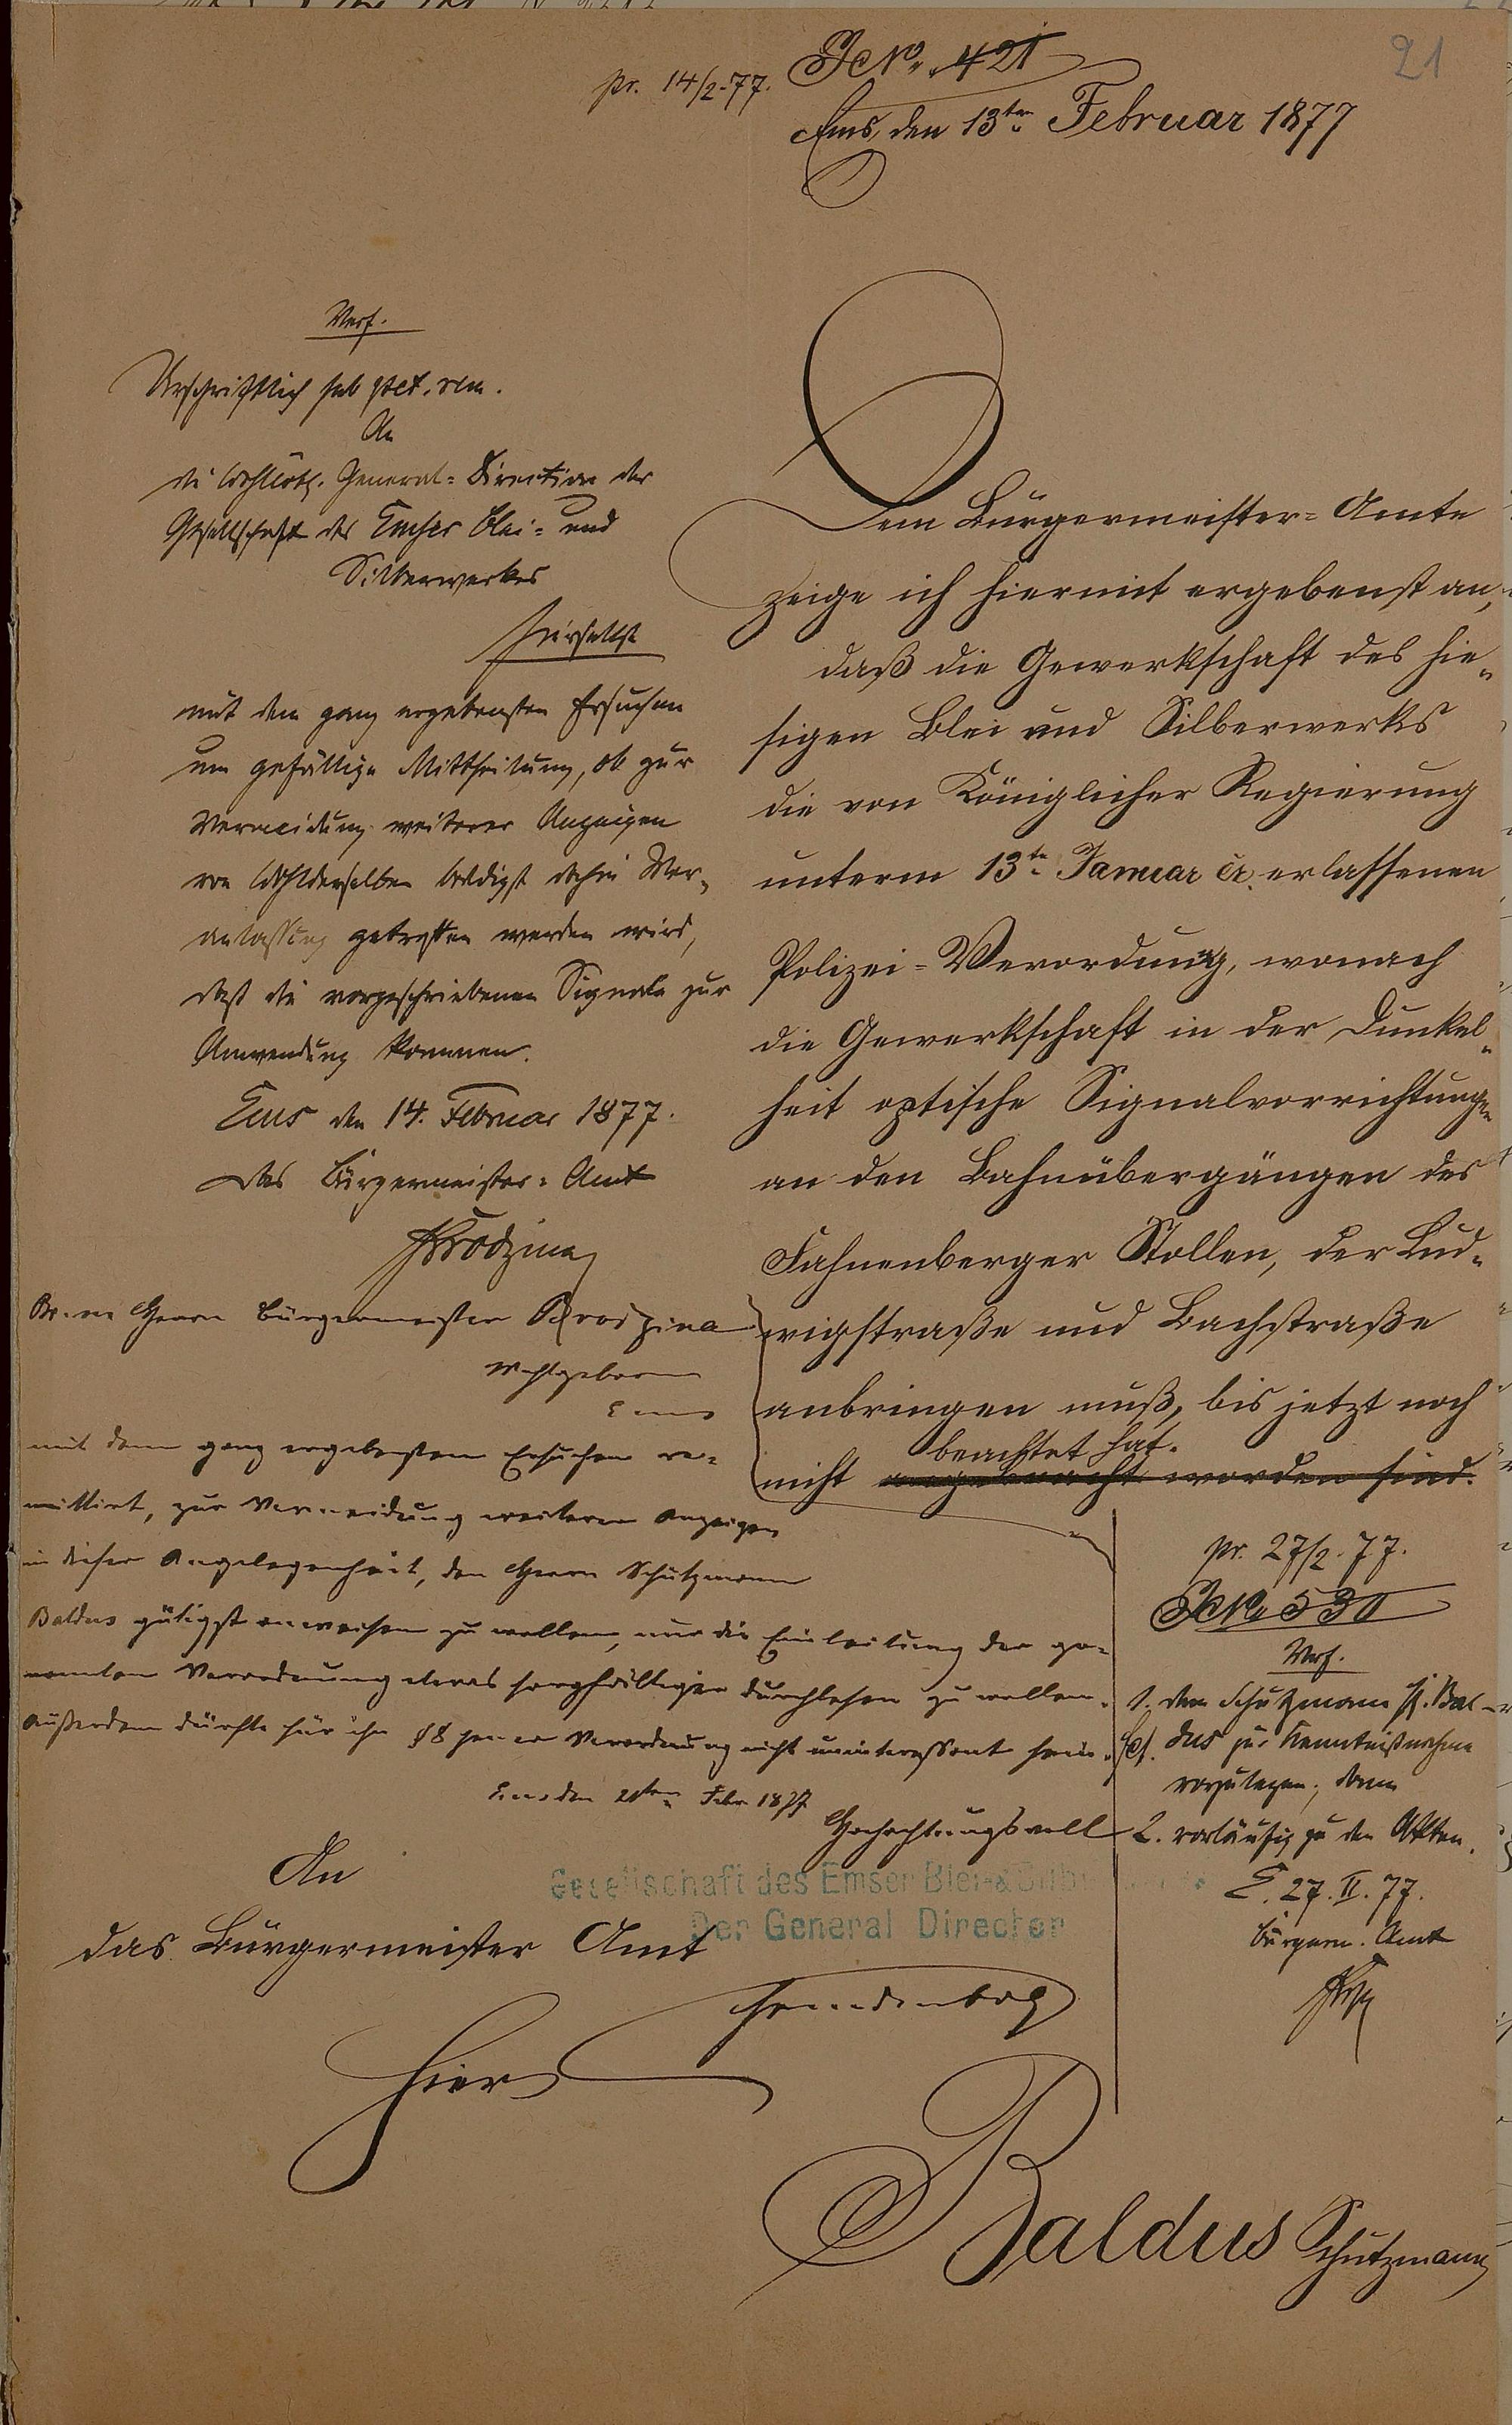 21
pr. 14/2.77.
J. No. 421
Ems, den 13ten Februar 1877
Dem Bürgermeister-Amte
zeige ich hiermit ergebenst an,
daß die Gewerkschaft des hie-
sigen Blei und Silberwerks
die von Königlicher Regierung
unterm 13ten Januar cr. erlassenen
Polizei-Verordnung, wonach
die Gewerkschaft in der Dunkel-
heit optische Signalvorrichtungen
an den Bahnübergängen des
Fahnenberger Stollen, der Lud-
wigstraße und Bachstraße
anbringen muß, bis jetzt noch
beachtet hat.
nicht angebracht worden sind.
Baldus Schutzmann
An
das Bürgermeister Amt
Hier
Verf.
Urschriftlich sub pet. rem.
An
die Wohllöbl. General-Direction der
Gesellschaft des Emser Blei- und
Silberwerkes
hierselbst
mit dem ganz ergebensten Ersuchen
um gefällige Mittheilung, ob zur
Vermeidung weiterer Anzeigen
von Wohlderselben baldigst dahin Ver-
anlassung getroffen werden wird,
daß die vorgeschriebenen Signale zur
Anwendung kommen.
Ems den 14. Februar 1877.
Das Bürgermeister-Amt
Brodzina
Herrn Bürgermeister Brodzina
Wohlgeboren
Ems
mit dem ganz ergebensten Ersuchen re-
mittirt, zur Vermeidung weiterer Anzeigen
in dieser Angelegenheit, den Herrn Schutzmann
Baldus gütigst anweisen zu wollen, nur die Einleitung der ge-
nannten Verordnung etwas sorgfältiger durchlesen zu wollen.
Außerdem dürfte für ihn §8 jener Verordnung nicht uninteressant sein.
Ems den 21ten Febr 1877
Hochachtungsvoll
Gesellschaft des Emser Blei- & Silb
Der General Director
pr. 27/2.77.
J. No. 530
Verf.
1. dem Schutzmann H. Bal-
dus zur Kenntnißnahme
vorzulegen; dann
2. vorläufig zu den Akten.
E. 27.II.77.
Bürgerm. Amt